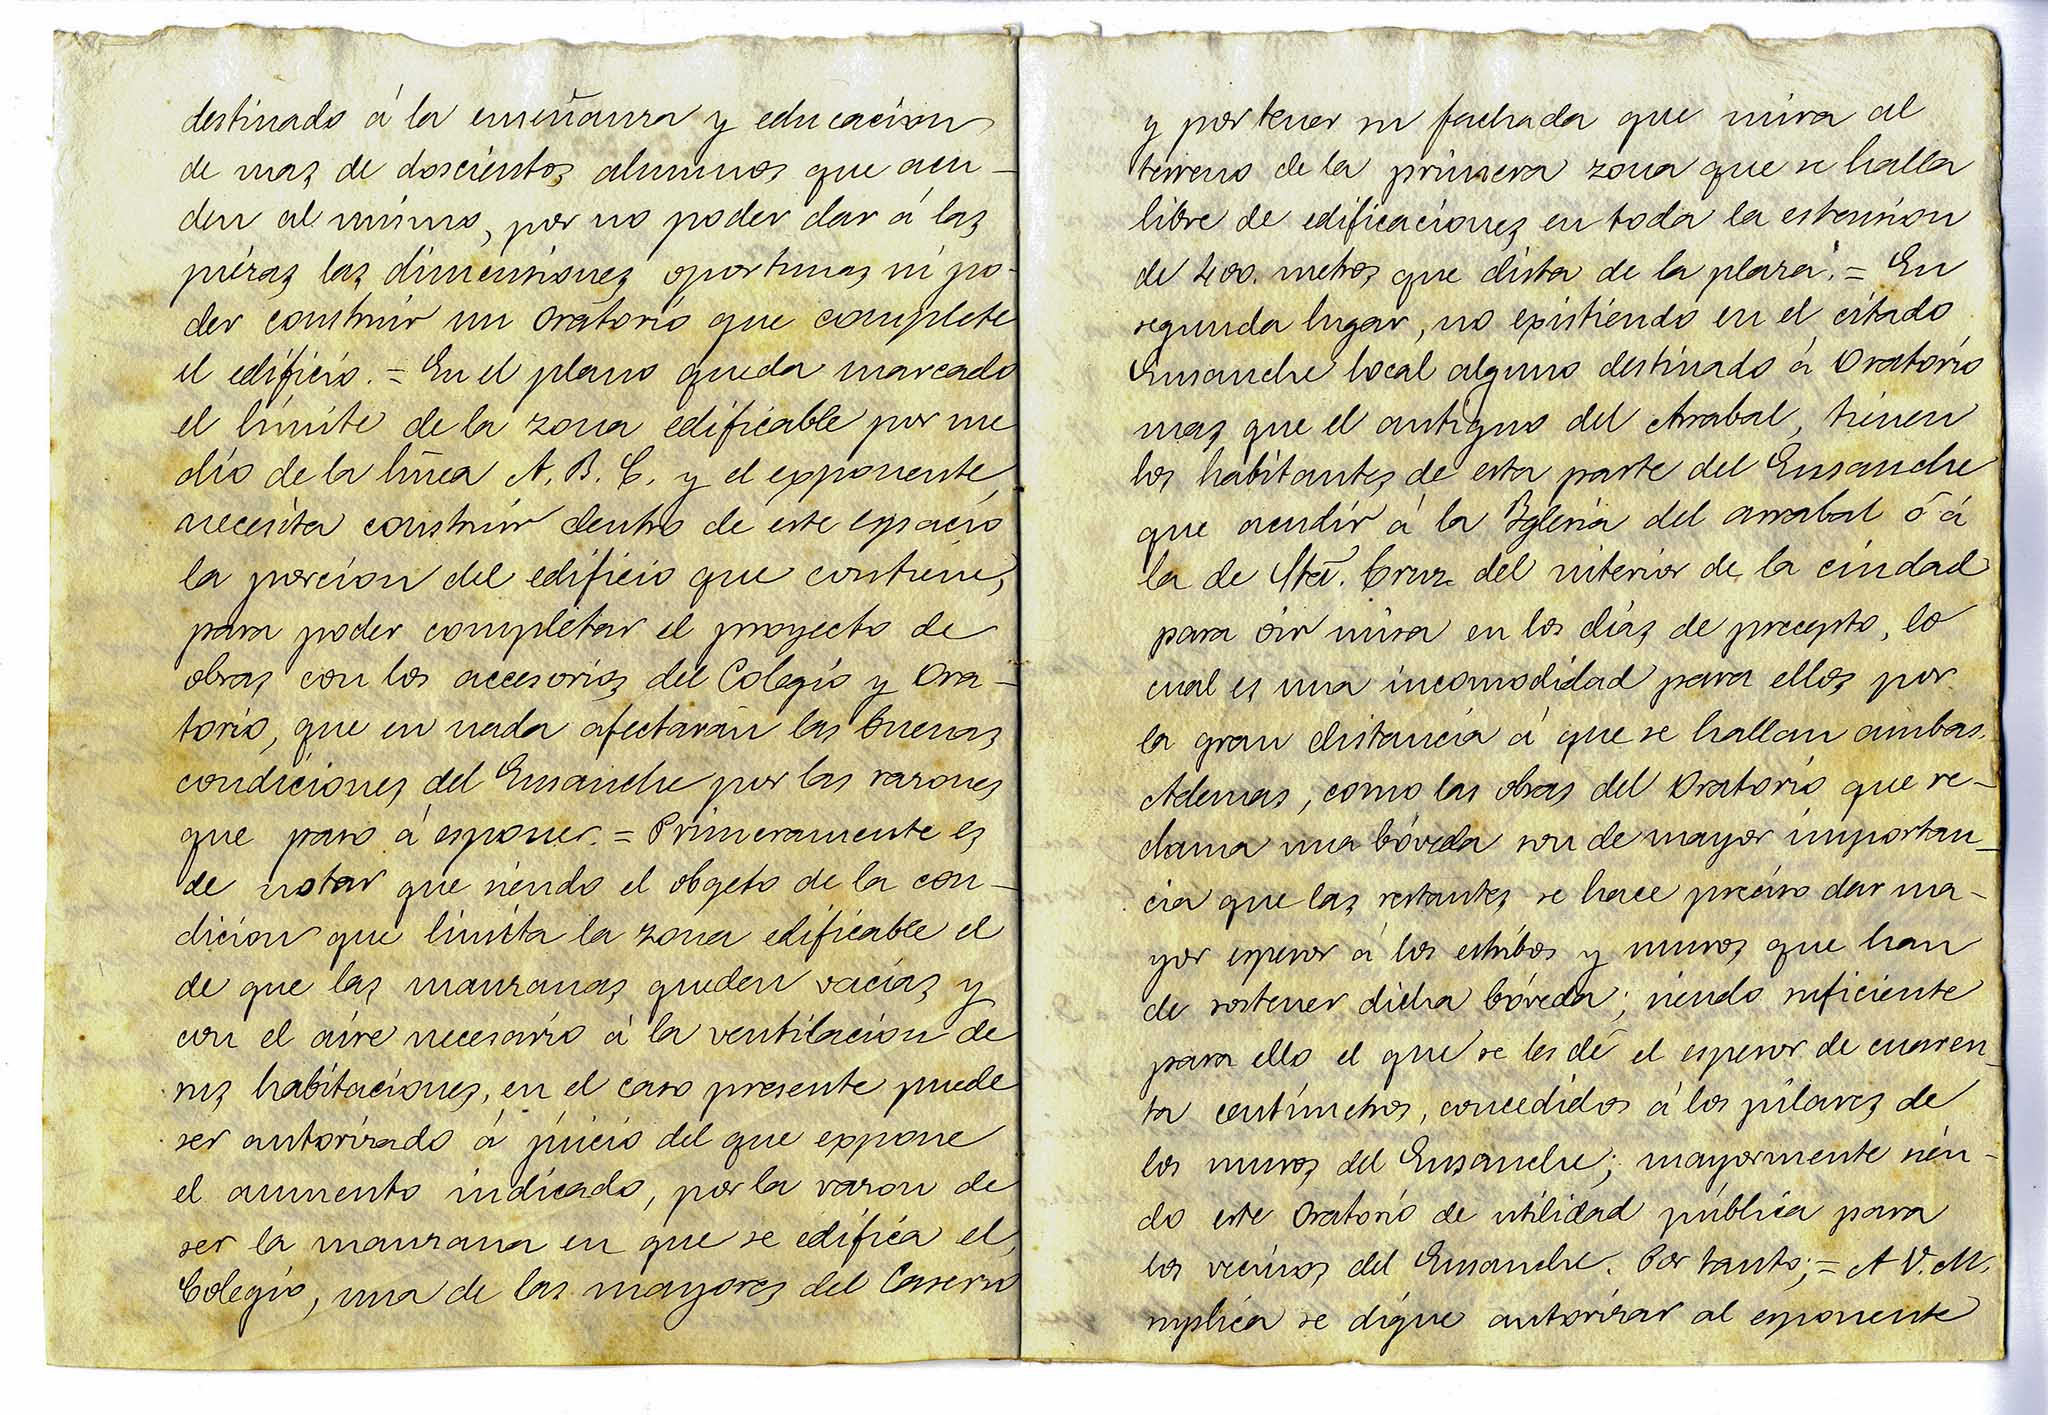 destinado á la enseñanza y educacion
de mas de doscientos alumnos que acu-
den al mismo, por no poder dar á las
piezas las dimensiones oportunas ni po-
der construir un Oratorio que complete
el edificio. = En el plano queda marcado
el límite de la zona edificable por me
dio de la línea A. B. C. y el exponente,
necesita construir dentro de este espacio
la porcion del edificio que contiene,
para poder completar el proyecto de
obras con los accesorios del Colegio y Ora-
torio, que en nada afectarán las buenas
condiciones del Ensanche por las razones
que paso á esponer. = Primeramente es
de notar que siendo el obgeto de la con-
dicion que limita la zona edificable el
de que las manzanas queden vacías y
con el aire necesario á la ventilacion de
sus habitaciones, en el caso presente puede
ser autorizado á juicio del que expone
el aumento indicado, por la razon de
ser la manzana en que se edifica el
Colegio, una de las mayores del Caserio
y por tener su fachada que mira al
terreno de la primera zona que se halla
libre de edificaciones en toda la estension
de 400. metros que dista de la plaza. = En
segunda lugar, no existiendo en el citado
Ensanche local alguno destinado á Oratorio
mas que el antiguo del Arrabal, tienen
los habitantes de esta parte del Ensanche
que acudir á la Yglesia del arrabal ó á
la de Sta. Cruz del interior de la ciudad
para oir misa en los días de precepto, lo
cual es una incomodidad para ellos por
la gran distancia á que se hallan ambas.
Ademas, como las obras del Oratorio que re-
clama una bóveda son de mayor importan-
cia que las restantes se hace preciso dar ma-
yor espesor á los estribos y muros que han
de sostener dicha bóveda; siendo suficiente
para ello el que se les dé el espesor de cuaren-
ta centímetros, concedidos á los pilares de
los muros del Ensanche; mayormente sien-
do este Oratorio de utilidad pública para
los vecinos del Ensanche. Por tanto; = A V. M.
suplica se digne autorizar al esponente